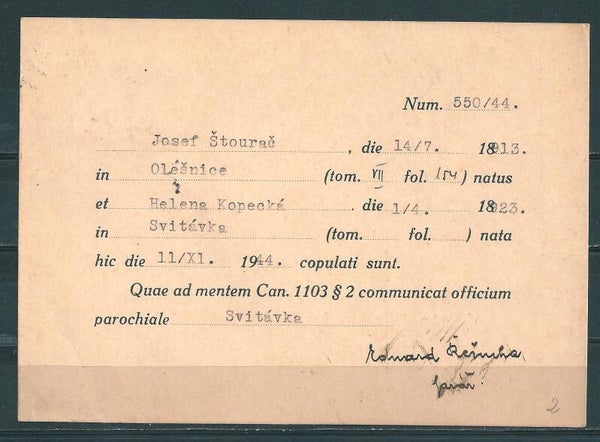 Num. 550/44.
Josef Štourač, die 14/7. 1913.
in Olešnice (tom. VII fol. 154) natus
et Helena Kopecká, die 1/4. 1923.
in Svitávka (tom. fol. ) nata
hic die 11/XI. 1944. copulati sunt.
Quae ad mentem Can. 1103 § 2 communicat officium
parochiale Svitávka
Eduard
farář.
2